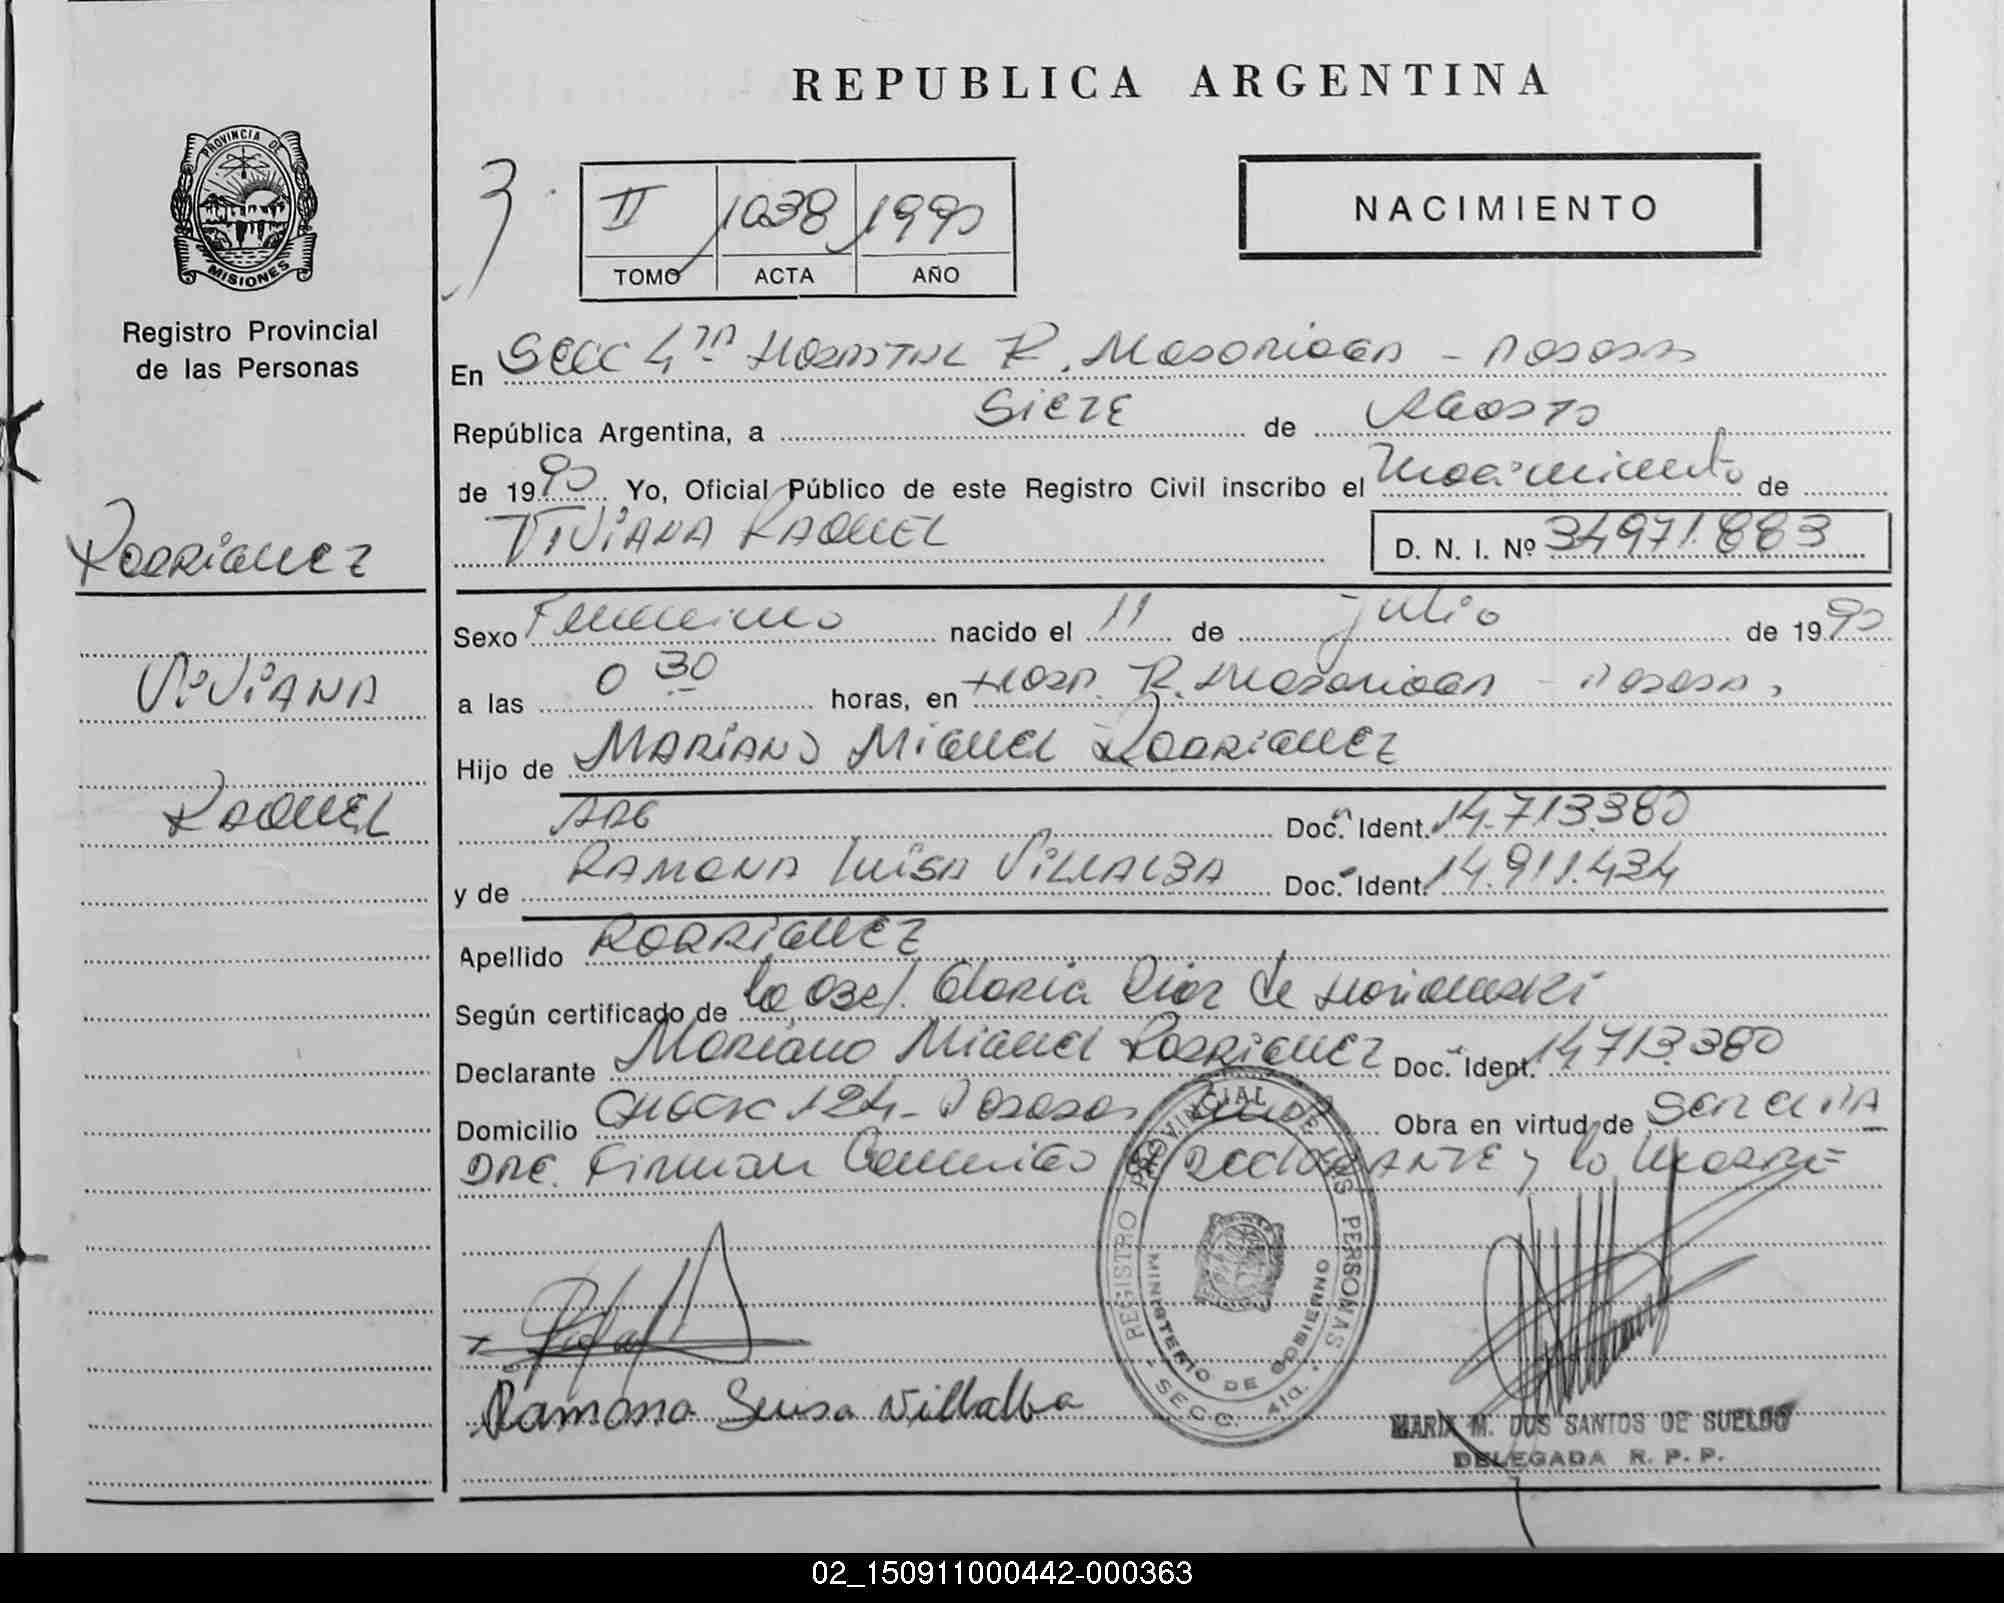 REPUBLICA ARGENTINA
PROVINCIA DE
MISIONES
Registro Provincial
de las Personas
II 1038 1990
TOMO ACTA AÑO
NACIMIENTO
En Secc 4ta Hospital R. Madariaga - Posadas
República Argentina, a Siete de Agosto
de 1990 Yo, Oficial Público de este Registro Civil inscribo el nacimiento de
VIVIANA RAQUEL D. N. I. Nº 34971.883
Rodriguez
Viviana
Raquel
Sexo Femenino nacido el 11 de julio de 1990
a las 0 30 horas, en Hosp. R. Madariaga - Posadas,
Hijo de Mariano Miguel Rodriguez
ARG Doc. Ident. 14.713.380
y de Ramona Luisa Villalba Doc. Ident. 14.911.434
Apellido RODRIGUEZ
Según certificado de la Obst. Gloria Diaz de
Declarante Mariano Miguel Rodriguez Doc. Ident. 14713.380
Domicilio 124 - Posadas Obra en virtud de
DAC. Firman Conmigo Declarante y la Madre
Ramona Luisa Villalba
REGISTRO PROVINCIAL DE LAS PERSONAS
MINISTERIO DE GOBIERNO
SECC. 4ta.
MARIA M. DOS SANTOS DE SUELDO
DELEGADA R. P. P.
02_150911000442-000363